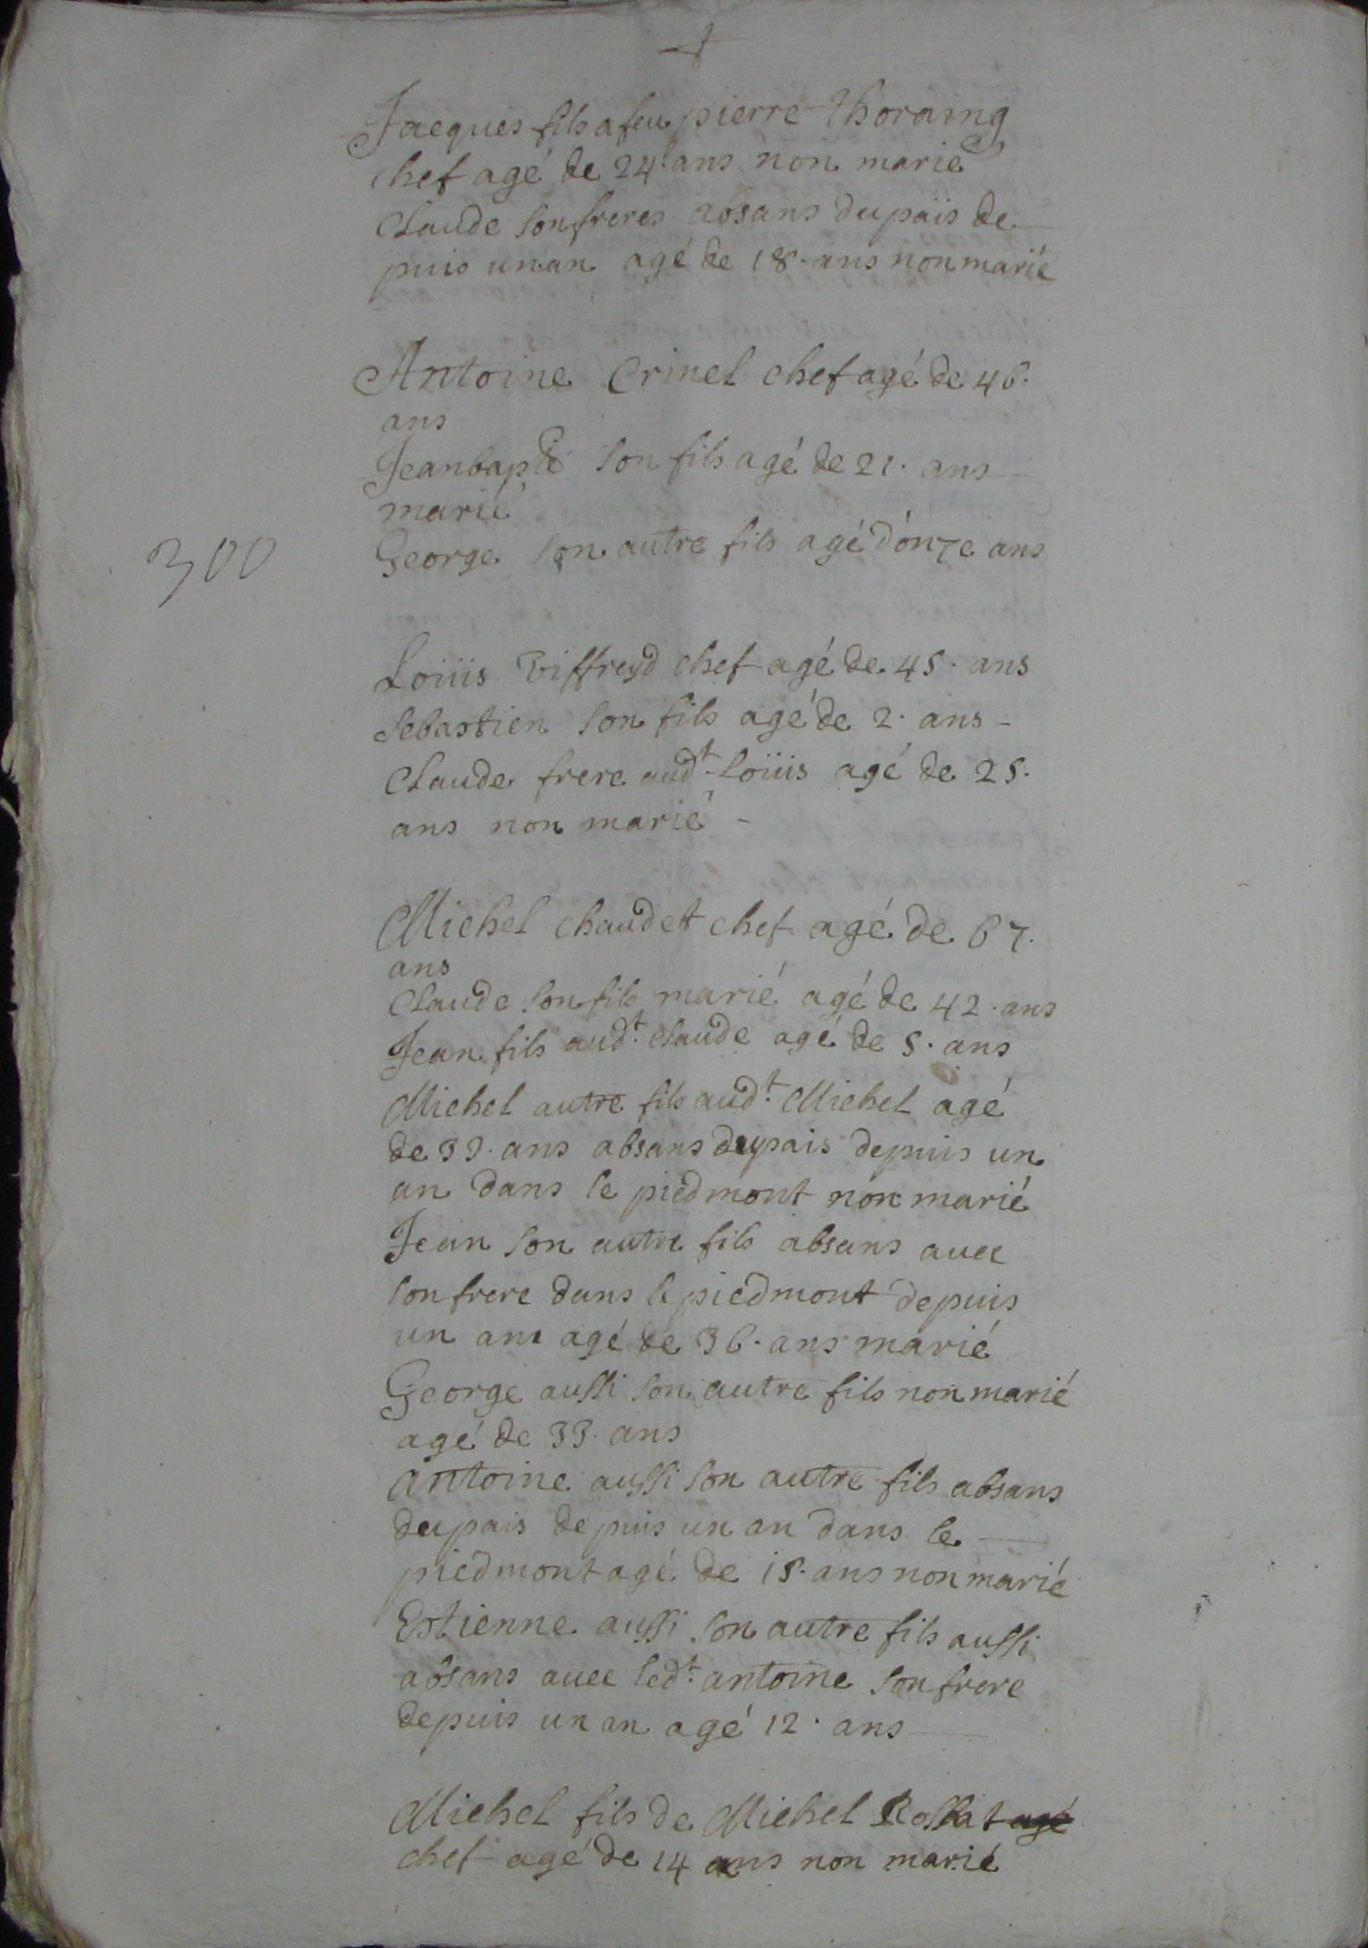 Jacques fils a feu pierre thoraing
chef agé de 24. ans non marié
Claude son freres absans du païs de
puis un an agé de 18. ans non marié
Antoine Crinel chef agé de 46.
ans
Jeanbapte son fils agé de 21. ans
marié
300
George son autre fils agé d'onze ans
Loüis Viffreyd chef agé de 45. ans
Sebastien son fils agé de 2. ans -
Claude frere audt Loüis agé de 25.
ans non marié -
Michel chaudet chef agé de 67.
ans
Claude son fils marié agé de 42. ans
Jean fils audt. Claude agé de 5. ans
Michel autre fils audt. Michel agé
de 39. ans absans du pais depuis un
an dans le piedmont non marié
Jean son autre fils absans auec
son frere dans le piedmont depuis
un ans agé de 36. ans marié
George aussi son autre fils non marié
agé de 33. ans
antoine aussi son autre fils absans
du pais depuis un an dans le
piedmont agé de 15. ans non marié
Estienne aussi son autre fils aussi
absans auec ledt. antoine son frere
depuis un an agé 12. ans
Michel fils de Michel Rossat agé
chef agé de 14 ans non marié